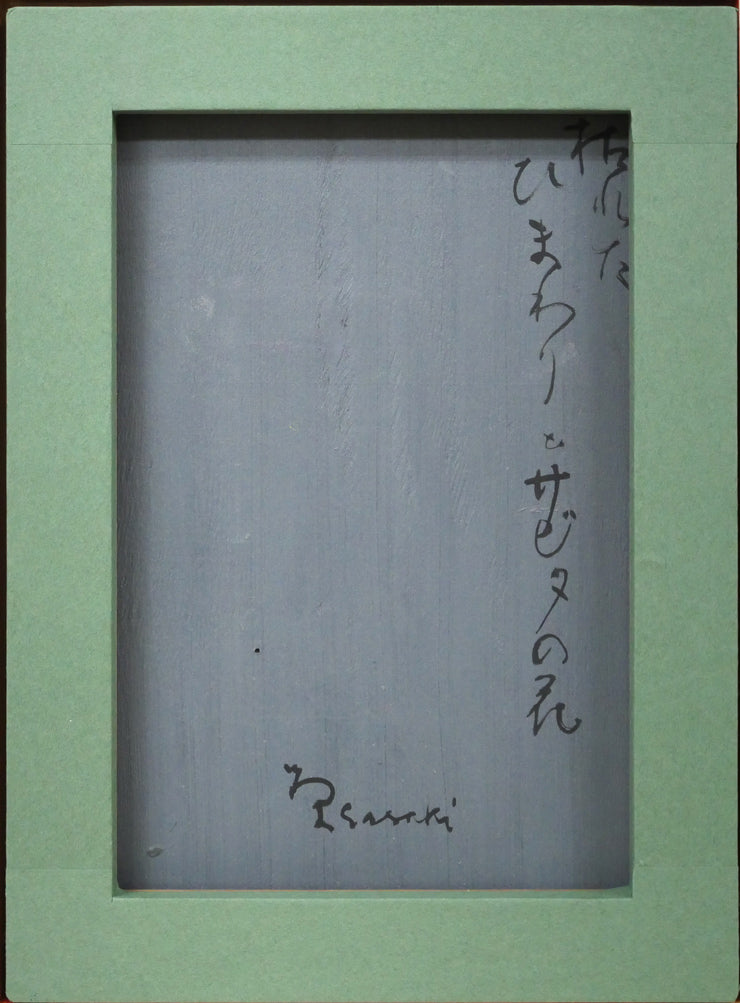 枯れた
ひまわりとサビタの花
R Sasaki